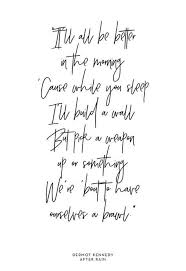 "It'll all be better
in the morning
'Cause while you sleep
I'll build a wall
But pick a weapon
up or something
We're 'bout to have
ourselves a brawl"
DERMOT KENNEDY
AFTER RAIN